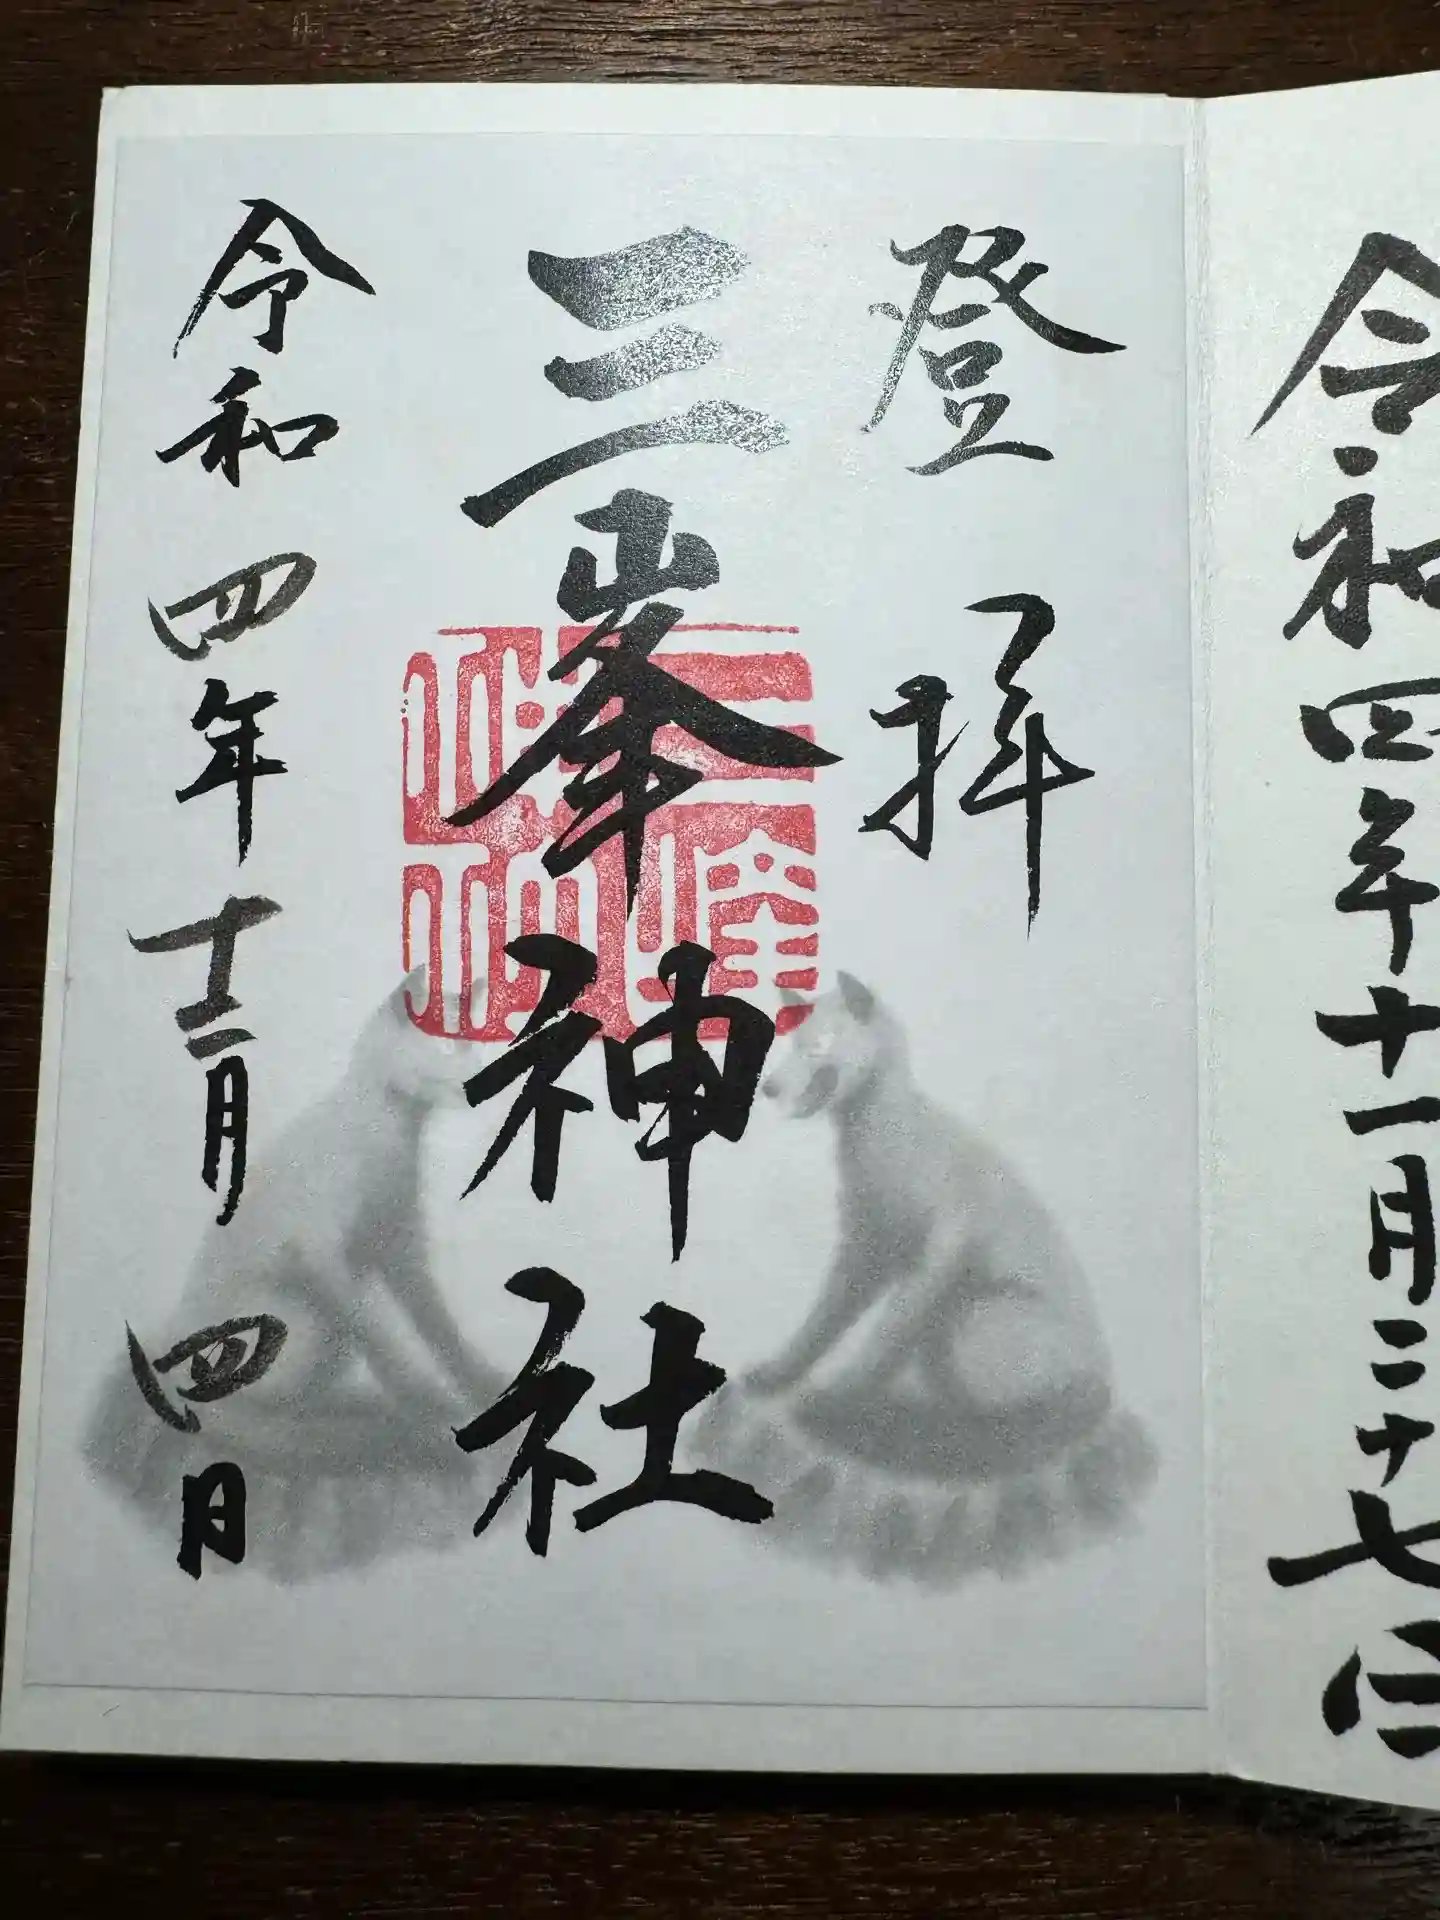 令和四年十一月二十七日
登拝
三峯神社
令和四年十二月四日